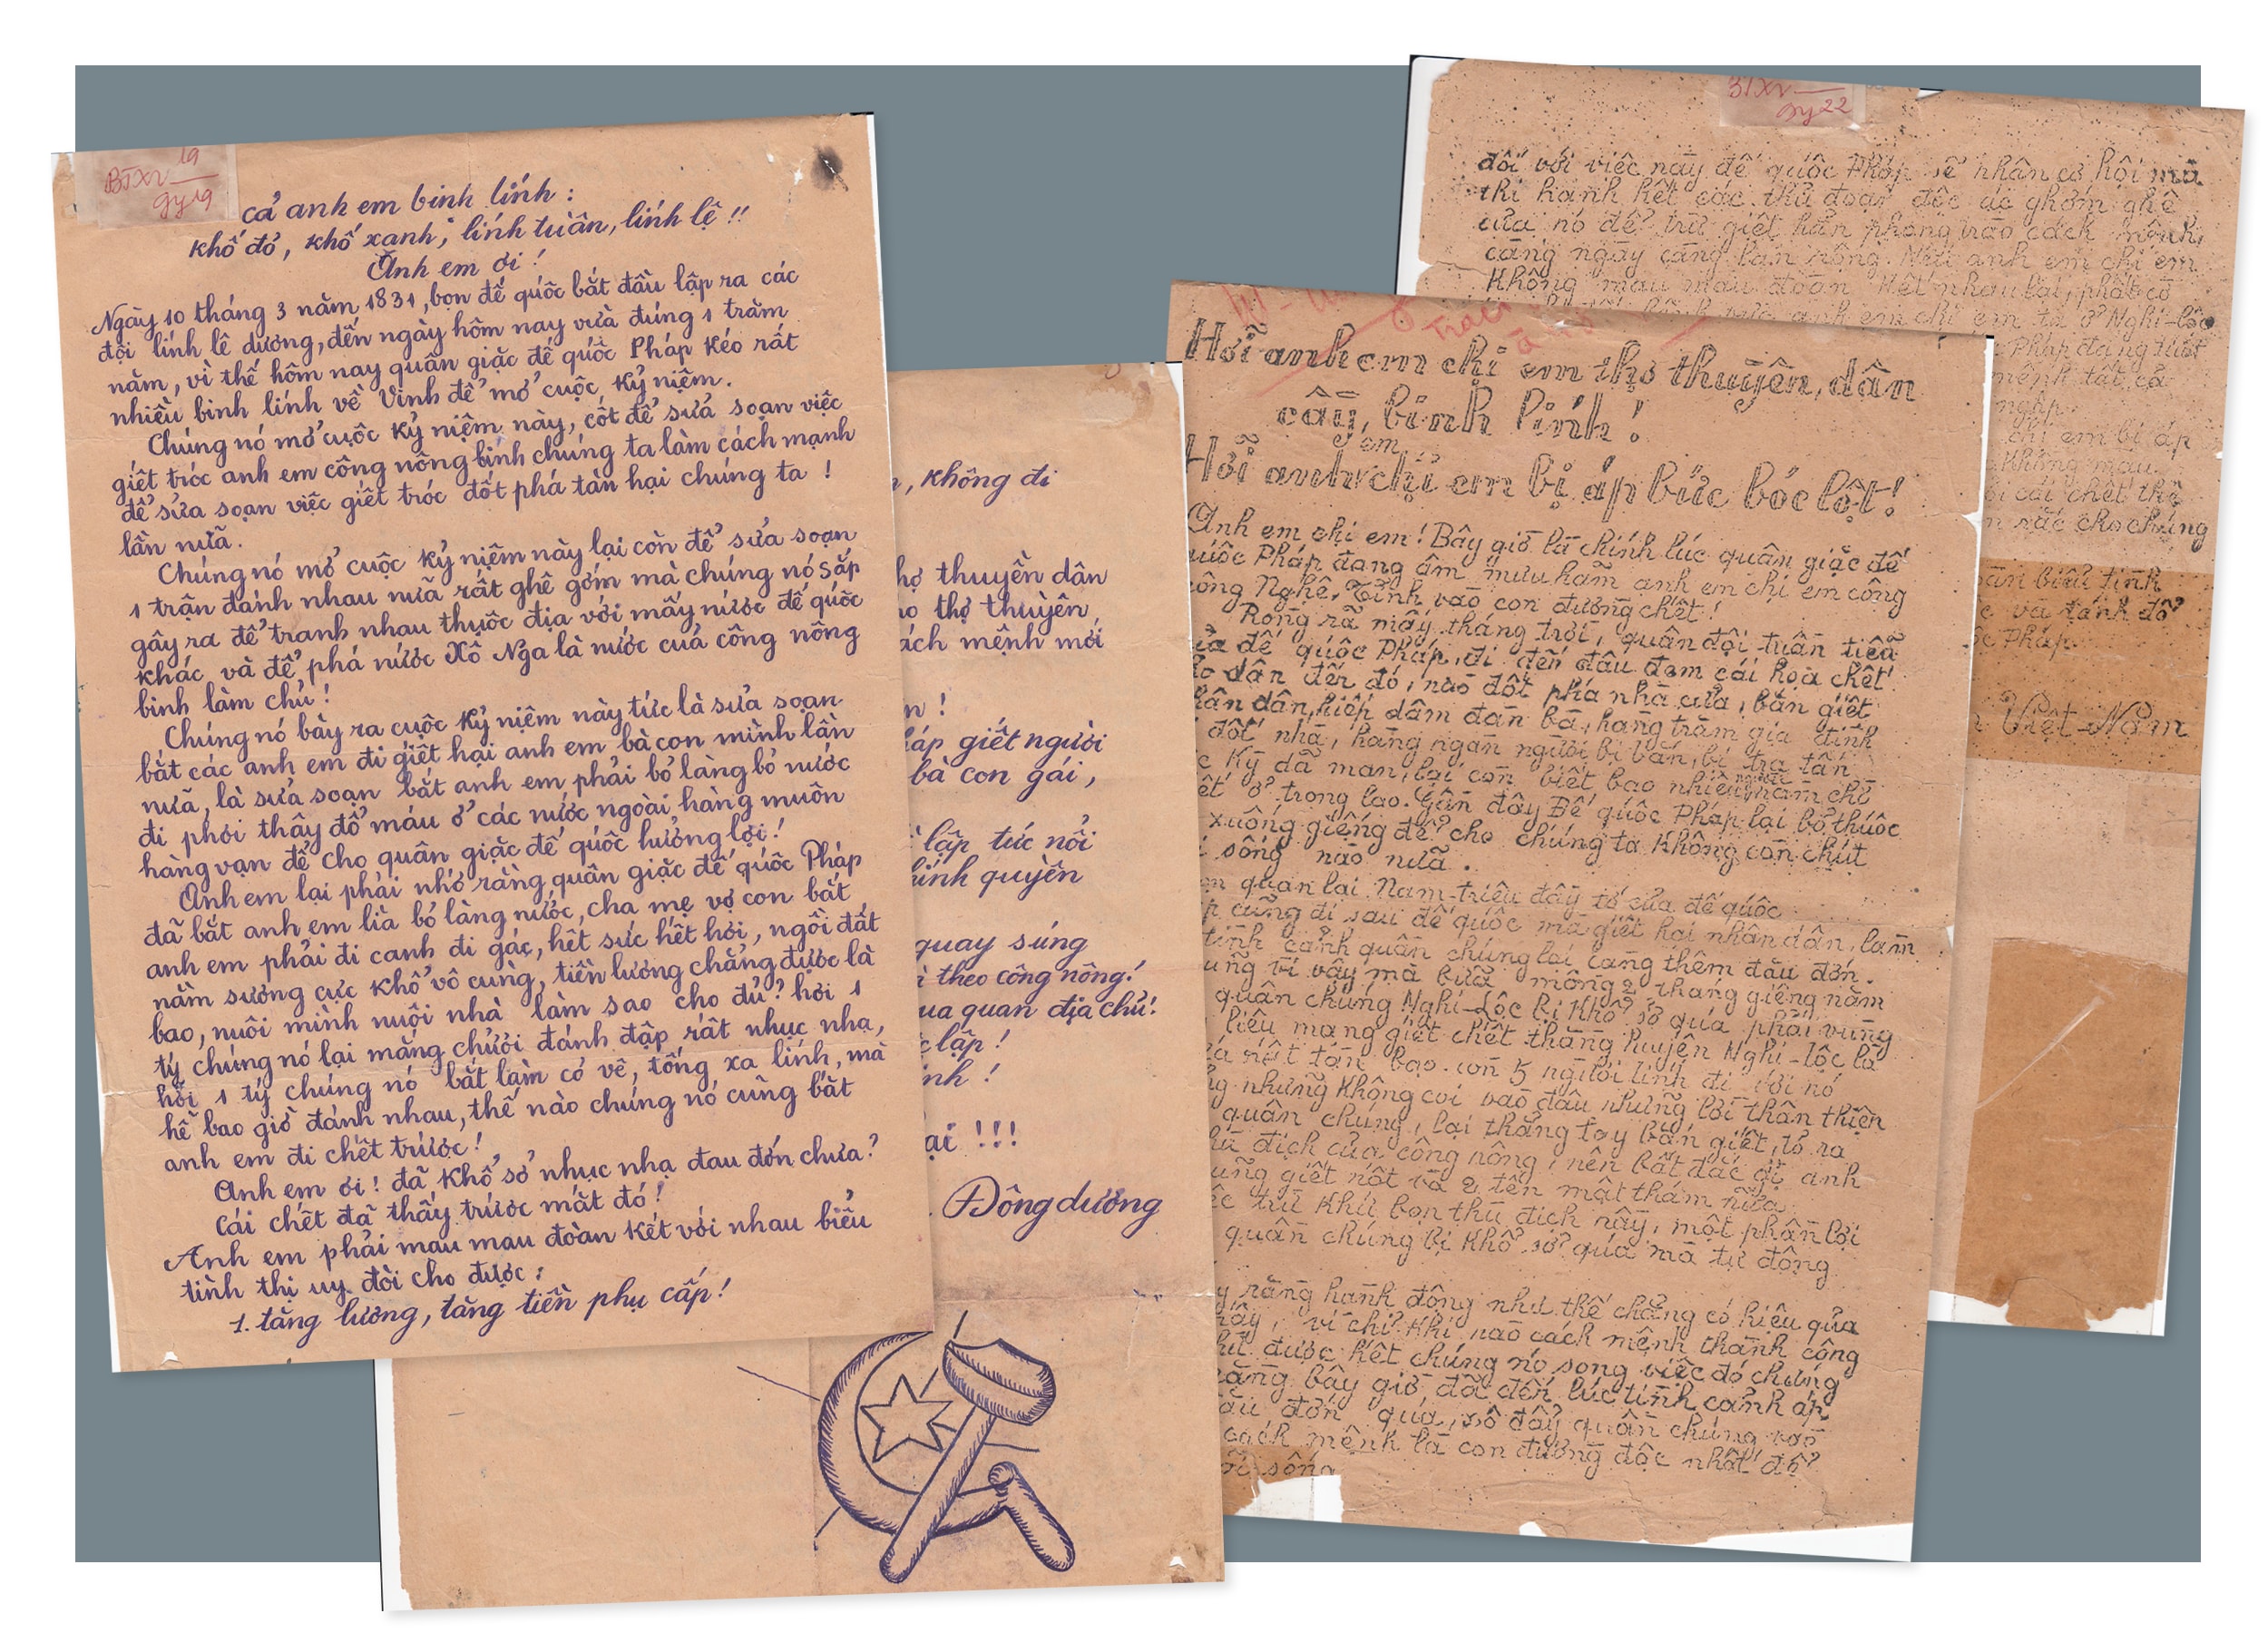 BTXV 19
gy 19
cả anh em binh lính :
khố đỏ, khố xanh, lính tuần, lính lệ !!
Anh em ơi !
Ngày 10 tháng 3 năm 1831, bọn đế quốc bắt đầu lập ra các
đội lính lê dương, đến ngày hôm nay vừa đúng 1 trăm
năm, vì thế hôm nay quân giặc đế quốc Pháp kéo rất
nhiều binh lính về Vinh để mở cuộc kỷ niệm.
Chúng nó mở cuộc kỷ niệm này, cốt để sửa soạn việc
giết tróc anh em công nông binh chúng ta làm cách mạnh
để sửa soạn việc giết tróc đốt phá tàn hại chúng ta !
lần nữa.
Chúng nó mở cuộc kỷ niệm này lại còn để sửa soạn
1 trận đánh nhau nữa rất ghê gớm mà chúng nó sắp
gây ra để tranh nhau thuộc địa với mấy nước đế quốc
khác và để phá nước Xô Nga là nước của công nông
binh làm chủ !
Chúng nó bày ra cuộc kỷ niệm này tức là sửa soạn
bắt các anh em đi giết hại anh em bà con mình lần
nữa, là sửa soạn bắt anh em phải bỏ làng bỏ nước
đi phơi thây đổ máu ở các nước ngoài hàng muôn
hàng vạn để cho quân giặc đế quốc hưởng lợi !
Anh em lại phải nhớ rằng quân giặc đế quốc Pháp
đã bắt anh em lìa bỏ làng nước, cha mẹ vợ con bắt
anh em phải đi canh đi gác, hết sức hết hơi, ngồi đất
nằm sương cực khổ vô cùng, tiền lương chẳng được là
bao, nuôi mình nuôi nhà làm sao cho đủ? hơi 1
tý chúng nó lại mắng chửi đánh đập rất nhục nhạ,
hơi 1 tý chúng nó bắt làm cỏ vê, tống xa lính, mà
hễ bao giờ đánh nhau, thế nào chúng nó cũng bắt
anh em đi chết trước !
Anh em ơi ! đã khổ sở nhục nhạ đau đớn chưa?
Cái chết đã thấy trước mắt đó !
Anh em phải mau mau đoàn kết với nhau biểu
tình thị uy đòi cho được :
1. tăng lương, tăng tiền phụ cấp !
, không đi
thuyền dân
thợ thuyền,
mệnh mới
giết người
bà con gái,
lập tức nổi
quyền
quay súng
theo công nông !
quan địa chủ !
lập !
!!!
Đông dương
Hỡi anh em chị em thợ thuyền, dân
cầy, binh lính !
em
Hỡi anh chị em bị áp bức bóc lột !
Anh em chị em ! Bây giờ là chính lúc quân giặc đế
quốc Pháp đang âm mưu hãm anh em chị em công
nông Nghệ, Tĩnh vào con đường chết !
Ròng rã mấy tháng trời, quân đội tuần tiễu
của đế quốc Pháp, đi đến đâu đem cái họa chết
dân đến đó, nào đốt phá nhà cửa, bắn giết
dân, hiếp dâm đàn bà, hàng trăm gia đình
đốt nhà, hàng ngàn người bị bắn, bị tra tấn
kỳ dã man, lại còn biết bao nhiêu người nằm chờ
ở trong lao. Gần đây Đế quốc Pháp lại bỏ thuốc
xuống giếng để cho chúng ta không còn chút
sống nào nữa.
quan lại Nam-triều đầy tớ của đế quốc
cũng đi sau đế quốc mà giết hại nhân dân, làm
tình cảnh quần chúng lại càng thêm đau đớn.
vì vậy mà bữa mồng 2 tháng giêng năm
quần chúng Nghi-Lộc bị khổ sở quá phải vùng
liều mạng giết chết thằng huyện Nghi-lộc là
rất tàn bạo. còn 5 người lính đi với nó
nhưng không coi vào đâu những lời thân thiện
quần chúng, lại thẳng tay bắn giết, tỏ ra
địch của công nông, nên bất đắc dĩ anh
giết nốt và 2 tên mật thám nữa.
trừ khử bọn thù địch nầy, một phần lợi
quần chúng bị khổ sở quá mà tự động
rằng hành động như thế chẳng có hiệu quả
vì chỉ khi nào cách mệnh thành công
được hết chúng nó song việc đó chúng
rằng bây giờ đã đến lúc tình cảnh áp
đớn quá, xô đẩy quần chúng vào
cách mệnh là con đường độc nhất để
sống
BTXV
gy 22
đối với việc này đế quốc Pháp sẽ nhân cơ hội mà
thi hành hết các thủ đoạn độc ác ghớm ghê
của nó để trừ giết hẳn phong trào cách mệnh
càng ngày càng lan rộng. Nếu anh em chị em
không mau mau đoàn kết nhau lại, phất cờ
anh em chị em ta ở Nghi-lộc
Pháp đang
mệnh tất cả
chị em bị áp
không mau
cái chết thê
cho chúng
biểu tình
và đánh đổ
Pháp.
Việt-Nam